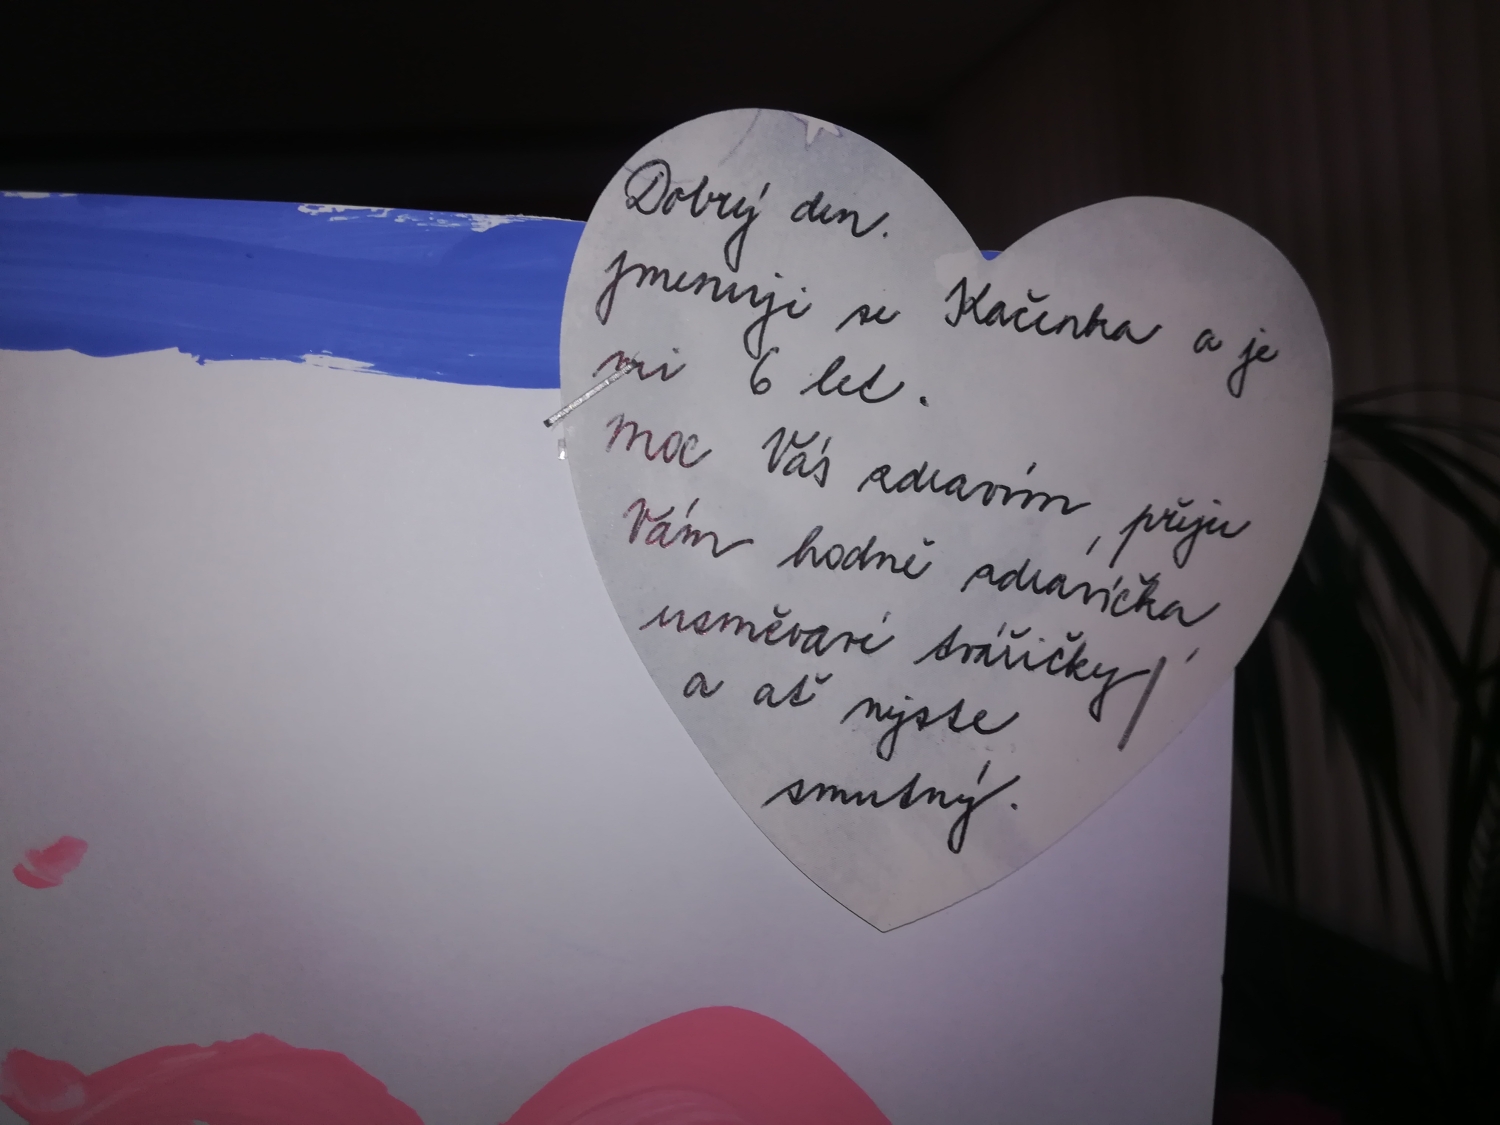 Dobrý den.
jmenuji se Kačenka a je
mi 6 let.
Moc Vás zdravím, přeju
Vám hodně zdravíčka
usměvavé tvářičky
a ať nejste
smutný.